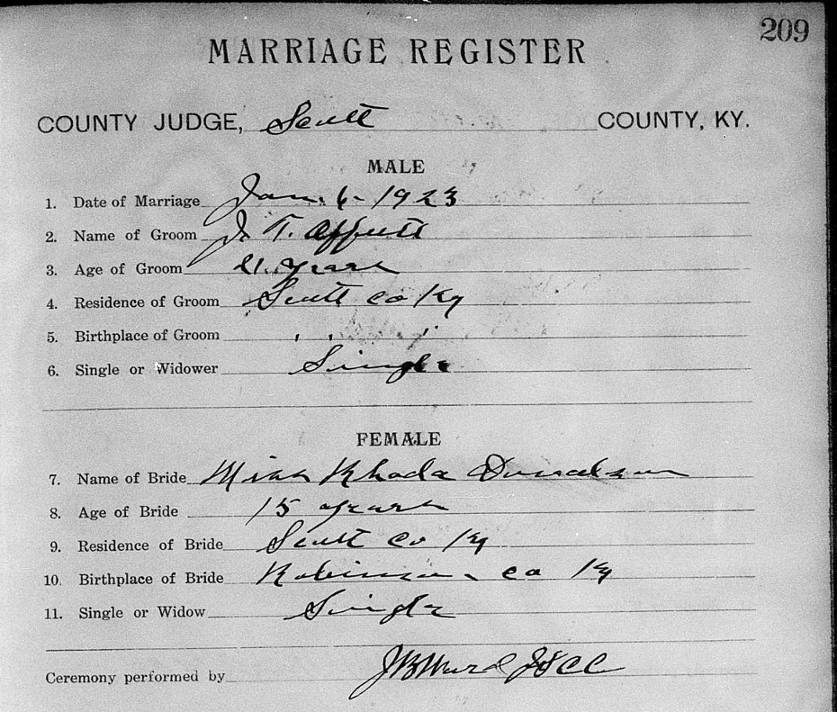 209
MARRIAGE REGISTER
COUNTY JUDGE, Scott COUNTY, KY.
MALE
1. Date of Marriage Jan. 6 - 1923
2. Name of Groom J. T. Offutt
3. Age of Groom 21. years
4. Residence of Groom Scott Co Ky
5. Birthplace of Groom , , "
6. Single or Widower Single
FEMALE
7. Name of Bride Miss Rhoda Donalson
8. Age of Bride 15 years
9. Residence of Bride Scott Co Ky
10. Birthplace of Bride Robinson Co Ky
11. Single or Widow Single
Ceremony performed by J B Ward